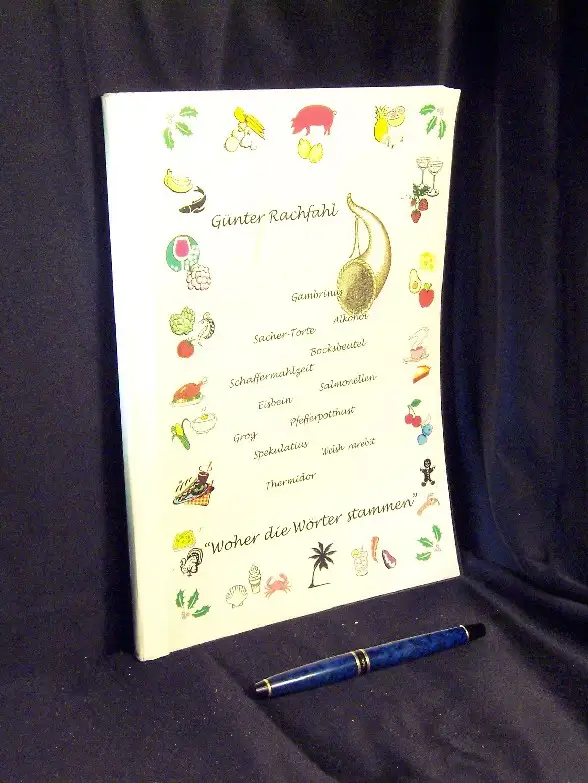 Günter Rachfahl
Gambrinus
Alkohol
Sacher-Torte
Bocksbeutel
Schaffermahlzeit
Salmonellen
Eisbein
Pfefferpotthust
Grog
Spekulatius
Welsh rarebit
Thermidor
"Woher die Wörter stammen"